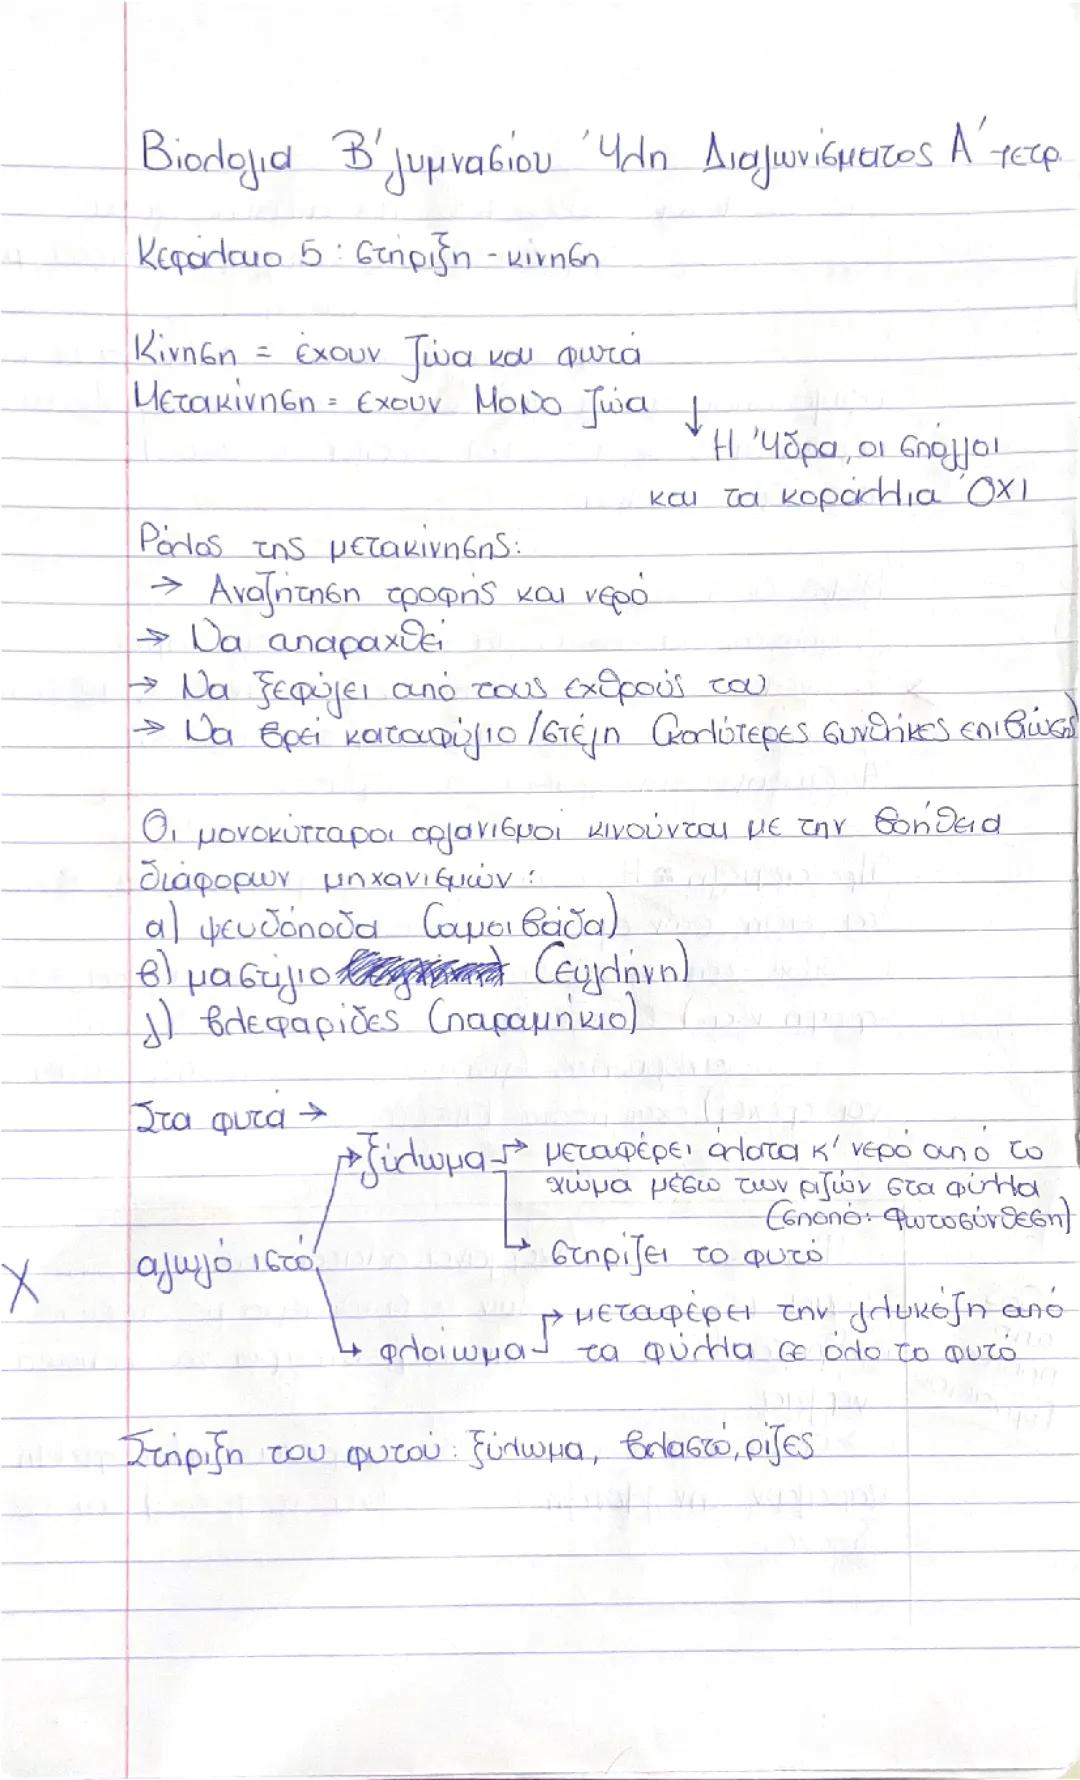 Βιολογια Β' γυμνασίου Ύλη Διαγωνίσματος Α' τετρ.
Κεφάλαιο 5: Στήριξη - κίνηση
Κίνηση = έχουν ζώα και φυτά
Μετακίνηση = έχουν ΜΟΝΟ ζώα ↓
Η Ύδρα, οι σπόγγοι
και τα κοράλλια ΌΧΙ
Ρόλος της μετακίνησης:
→ Αναζήτηση τροφής και νερό
→ Να απαραχθεί
→ Να ξεφύγει από τους εχθρούς του
→ Να βρει καταφύγιο / στέγη (καλύτερες συνθήκες επιβίωσης)
Οι μονοκύτταροι οργανισμοί κινούνται με την βοήθεια
διάφορων μηχανισμών:
α) ψευδόποδα (αμοιβάδα)
β) μαστίγιο (ευγλήνη)
γ) βλεφαρίδες (παραμήκιο)
Στα φυτά →
ξύλωμα → μεταφέρει άλατα κ' νερό από το
χώμα μέσω των ριζών στα φύλλα
(σποπό: φωτοσύνθεση)
Χ αγωγό ιστό → στηρίζει το φυτό
→ μεταφέρει την γλυκόζη από
φλοίωμα τα φύλλα σε όλο το φυτό
Στήριξη του φυτού: ξύλωμα, βλαστό, ρίζες